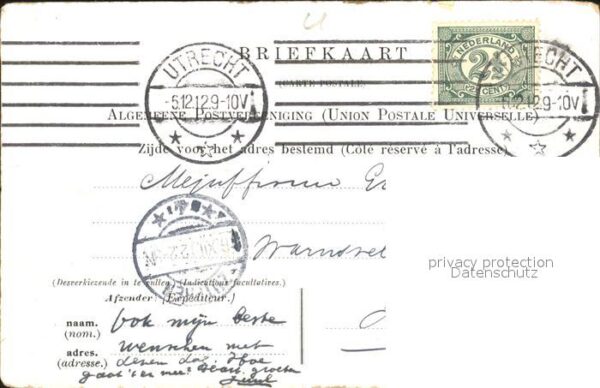 BRIEFKAART
(CARTE POSTALE)
ALGEMEENE POSTVEREENIGING (UNION POSTALE UNIVERSELLE)
Zijde voor het adres bestemd (Côté réservé à l'adresse)
UTRECHT
5.12.12.9-10V
NEDERLAND
2½
CENT
UTRECHT
5.12.12.9-10V
Mejuffrouw
Warnsve
privacy protection
Datenschutz
(Desverkiezende in te vullen.) (Indications facultatives.)
Afzender (Expéditeur.)
naam.
(nom.)
adres.
(adresse.)
Ook mijn beste
wenschen met
dezen dag. Hoe
gaat 't er mee?